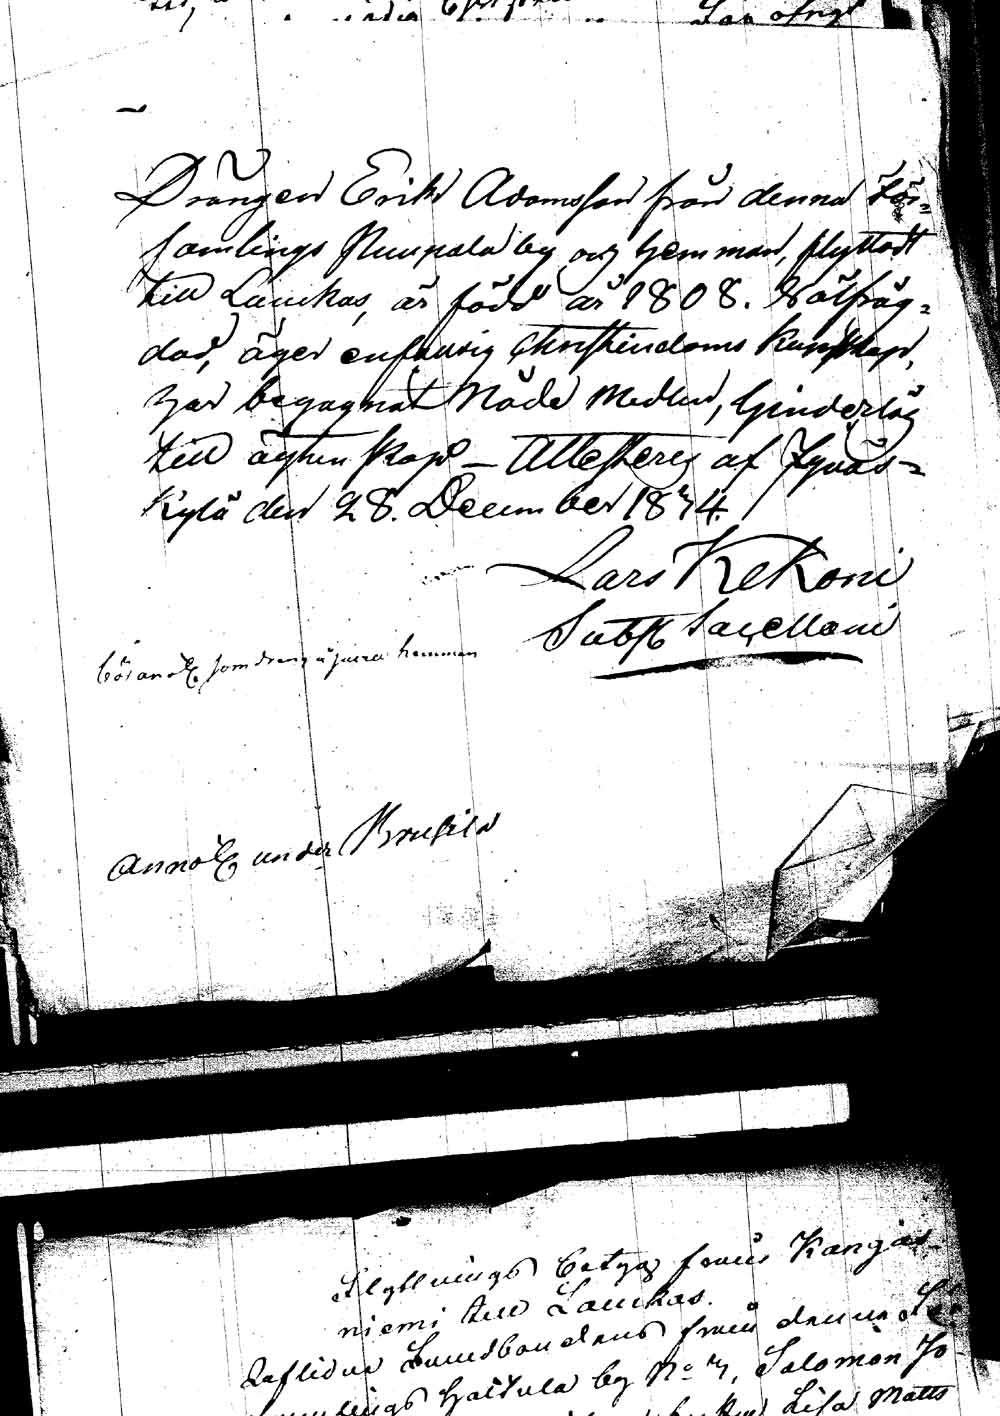 Drängen Erik Adamsson från denna För=
samlings Nuupala by och hemman, flyttadt
till Laukas, är född år 1808. Wälfräg=
dad, äger enfaldig Christendoms Kunskap,
har begagnat Nåde Medlen, hinderlös
till ägtenskap – Attesterez af Jyväs=
Kylä den 28. December 1834.
Lars Kekoni
Subst Sacellani
som dreng hemman
under
Flyttnings betyg från Kangas
niemi till Laukas.
Aflidne Landbondens från denna
by No 7, Salomon Jo
Lisa Matts